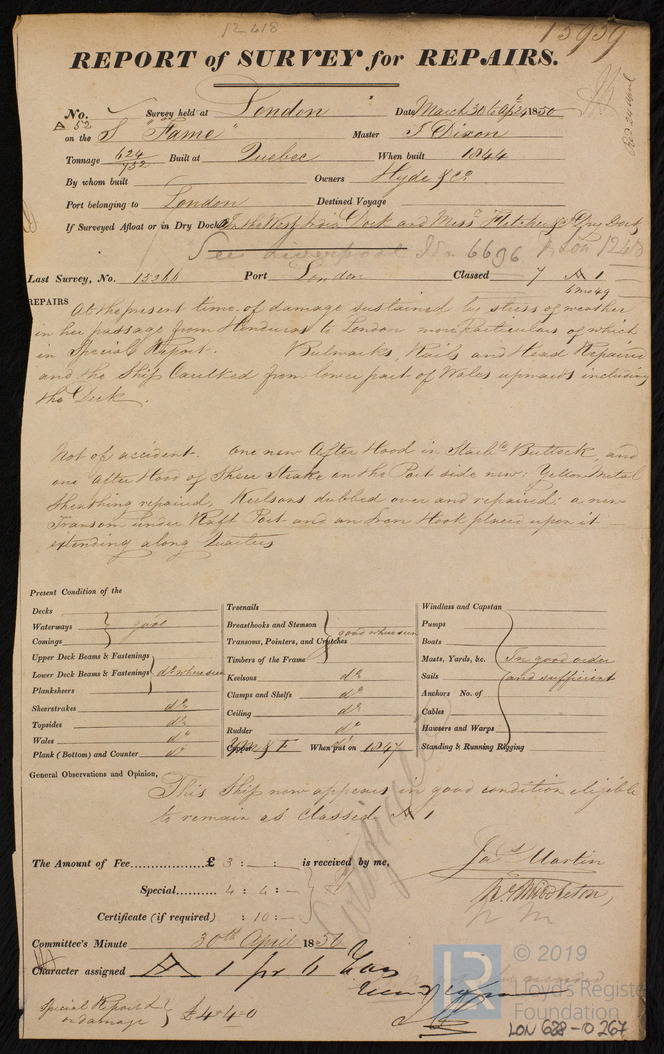 12418
15959
REPORT of SURVEY for REPAIRS.
No. Survey held at London Date March 30 to Apl 24 1850
A 52
on the S "Fame" Master J Dixon
Tonnage 624/752 Built at Quebec When built 1844
By whom built Owners Hyde & Co
Port belonging to London Destined Voyage
If Surveyed Afloat or in Dry Dock In the West India Dock and Messrs Fletcher & Dry Dock
See Liverpool No 6696
Last Survey, No. Port London Classed 7 A 1
6 mo 49
REPAIRS At the present time of damage sustained by stress of weather
in her passage from Honduras to London more particulars of which
in Special Report. Bulwarks, Rails and Head Repaired
and the Ship Caulked from lower part of Wales upwards including
the Deck.
Not of accident. One new After Hood in Starbd Buttock, and
one After Hood of Sheer Strake on the Port side new: Yellow Metal
Sheathing repaired, Keelsons dubbed over and repaired: a new
Transom under Raft Port and an Iron Hook placed upon it
extending along Quarters
Present Condition of the
Decks
Waterways good
Comings
Upper Deck Beams & Fastenings
Lower Deck Beams & Fastenings do where seen
Planksheers
Sheerstrakes do
Topsides do
Wales do
Plank (Bottom) and Counter do
Treenails
Breasthooks and Stemson good where seen
Transoms, Pointers, and Crutches
Timbers of the Frame
Keelsons do
Clamps and Shelfs do
Ceiling do
Rudder do
Copper Y M & F When put on 1847
Windlass and Capstan
Pumps
Boats
Masts, Yards, &c. In good order
Sails and sufficient
Anchors No. of
Cables
Hawsers and Warps
Standing & Running Rigging
General Observations and Opinion,
This Ship now appears in good condition eligible
to remain as Classed A 1
The Amount of Fee £ 3 : - : is received by me,
Jas Martin
Special 4 : 4 : -
W. Middleton,
Certificate (if required) : 10 : -
Committee's Minute 30th April 1850
Character assigned A 1 for 6 Yrs
Special Report &
on damage } £4-4-0
© 2019
LR
Lloyd's Register
Foundation
LON 628-10 267